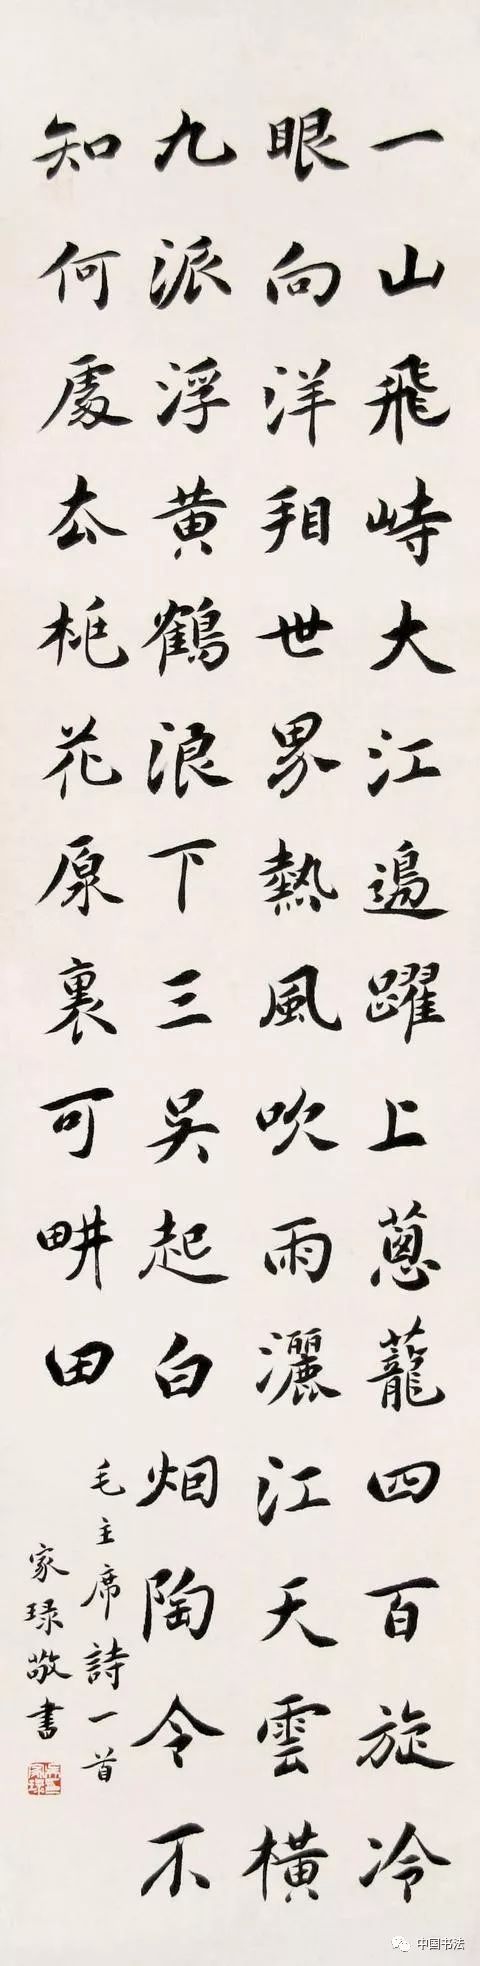 一山飛峙大江邊躍上蔥蘢四百旋冷
眼向洋看世界熱風吹雨灑江天雲橫
九派浮黄鶴浪下三吴起白烟陶令不
知何處去桃花原裏可畊田
毛主席詩一首
家琭敬書
中国书法